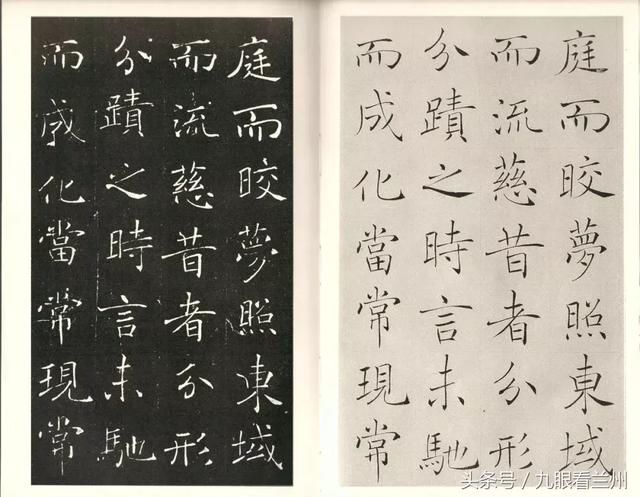 庭而晈夢照東域
而流慈昔者分形
分蹟之時言未馳
而成化當常現常
庭而晈夢照東域
而流慈昔者分形
分蹟之時言未馳
而成化當常現常
头条号 / 九眼看兰州